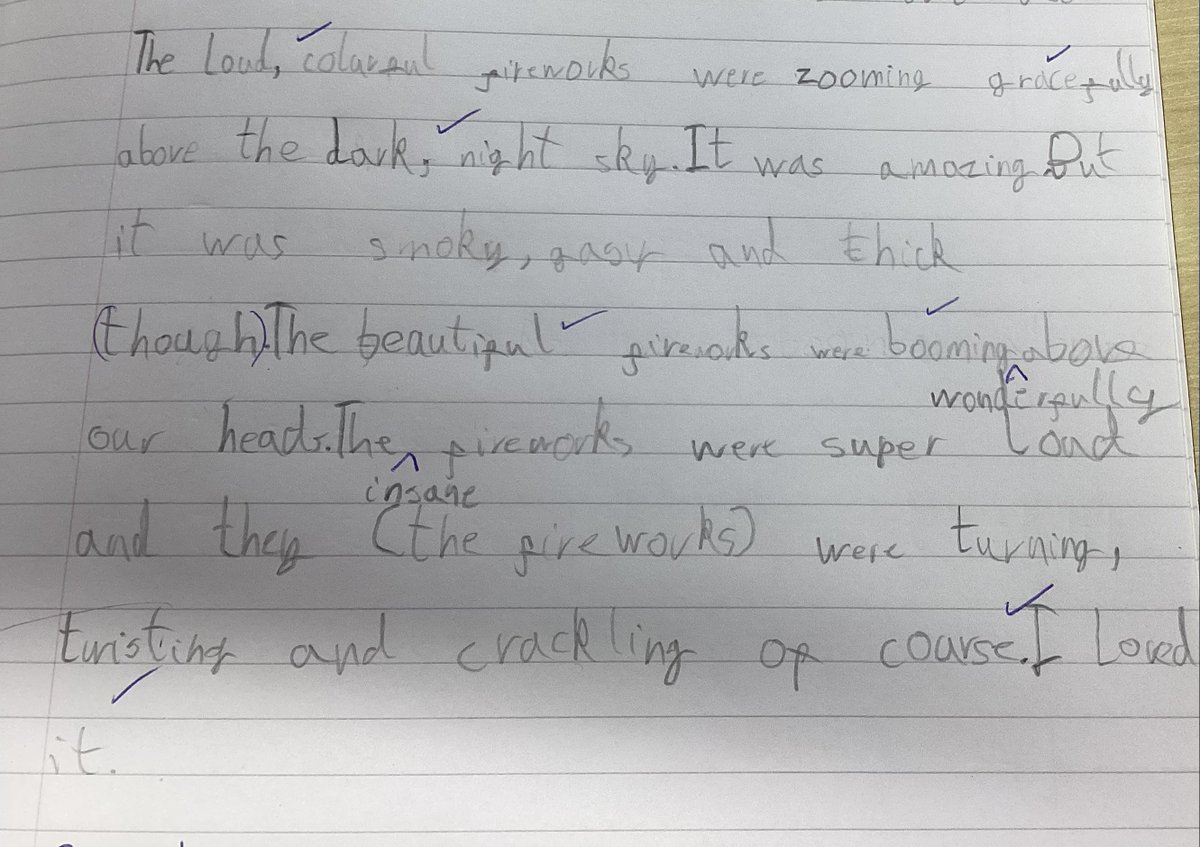 The loud, colarful fireworks were zooming gracefully
above the dark, night sky. It was amazing. But
it was smoky, gasy and thick
(though). The beautiful fireworks were booming above
wonderfully
our heads. The fireworks were super loud
insane
and they (the fireworks) were turning,
twisting and crackling of coarse. I loved
it.